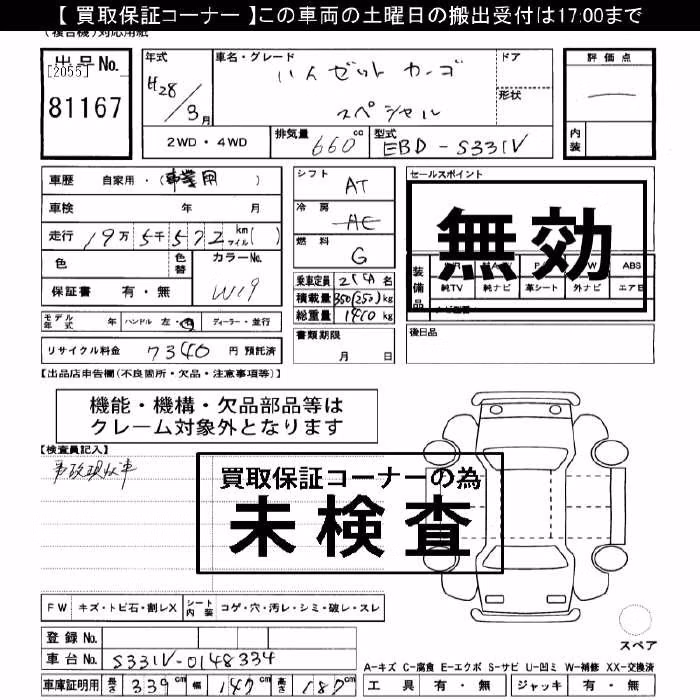 【 買取保証コーナー 】この車両の土曜日の搬出受付は17:00まで
出品No.
[2055]
81167
年式
H28/3月
車名・グレード
ハイゼット カーゴ
スペシャル
ドア
形状
評価点
内装
2WD・4WD
排気量
660cc
型式
EBD-S331V
車歴 自家用・(事業用)
車検 年 月
走行 19万5千572km マイル( )
色
色替
カラーNo.
W19
保証書 有・無
モデル年式 年 ハンドル 左・右 ディーラー・並行
リサイクル料金 7340 円 預託済
シフト
AT
冷房
AC
燃料
G
乗車定員 2(4)名
積載量 350(250)kg
総重量 1410kg
書類期限
月 日
セールスポイント
無効
装備品
ABS
純TV 純ナビ 革シート 外ナビ エアB
後日品
【出品店申告欄(不良箇所・欠品・注意事項等)】
機能・機構・欠品部品等は
クレーム対象外となります
【検査員記入】
事故現状車
買取保証コーナーの為
未検査
FW キズ・トビ石・割レX シート内装 コゲ・穴・汚レ・シミ・破レ・スレ
登録No.
車台No. S331V-0148334
車庫証明用 長さ 339cm 幅 147cm 高さ 187cm
スペア
A-キズ C-腐食 E-エクボ S-サビ U-凹ミ W-補修 XX-交換済
工具 有・無 ジャッキ 有・無